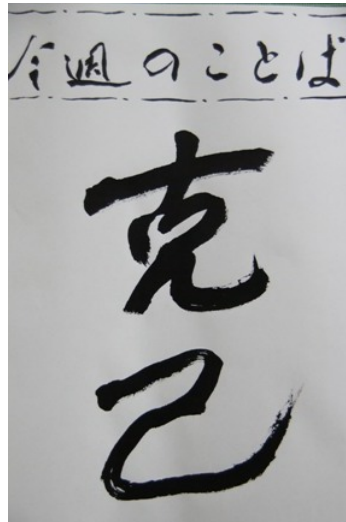 今週のことば
克己